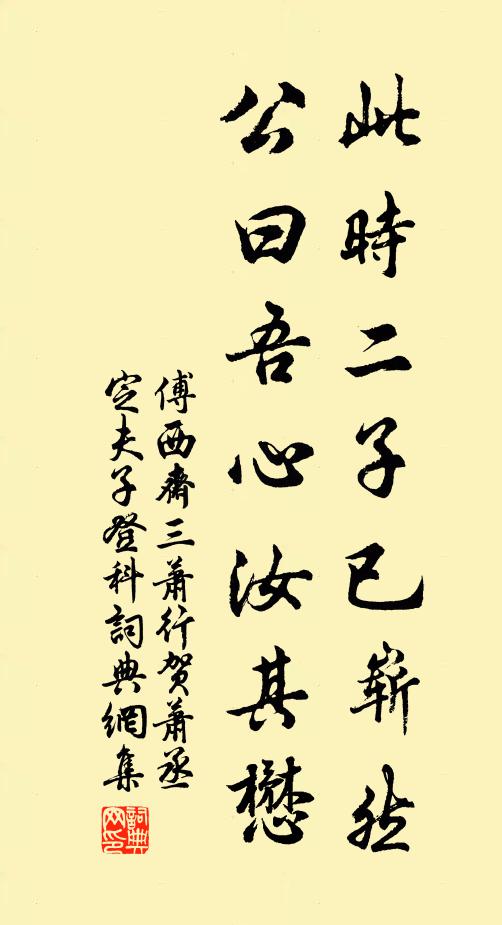 此時二子已嶄然
公曰吾心汝其懋
傅西齋三蕭行賀蕭丞
定夫子登科詞典網集
詞典
网印